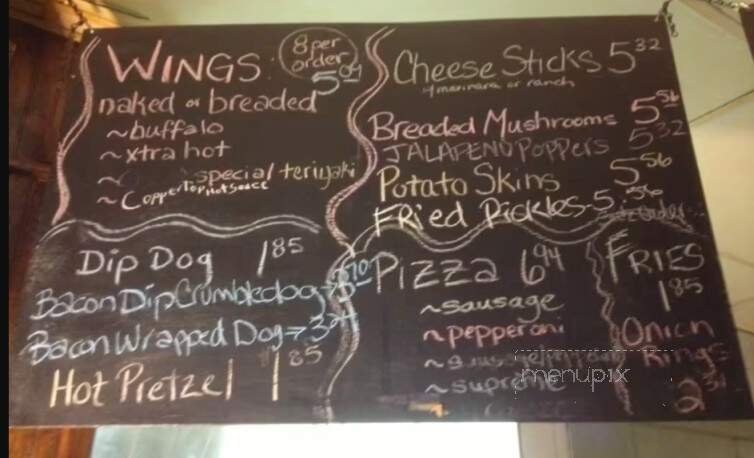 WINGS:
8 per
order
5 09
naked or breaded
~buffalo
~xtra hot
~ special teriyaki
~Coppertop hot sauce
Cheese Sticks 5 32
w/marinara or ranch
Breaded Mushrooms 5 56
JALAPENO Poppers 5 32
Potato Skins 5 56
FRied Pickles-5.56
Dip Dog 1 85
Bacon Dip Crumbledog→
Bacon Wrapped Dog→
Hot Pretzel 1 85
PIZZA 6 94
~sausage
~pepperoni
~supreme
FRIES
1 85
Onion
Rings
2
menupix